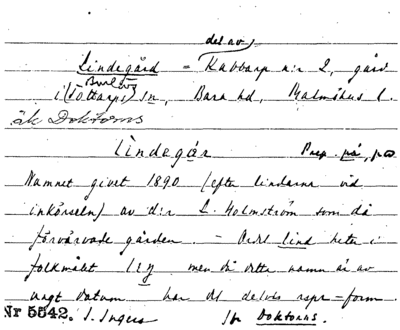 del av
Lindegård = Kabbarp n:r 2, gård
Burlöv
i (Tottarps) Sn, Bara hd, Malmöhus l.
äk Doktorns
lìndegår Prep. på, på
Namnet givet 1890 (efter lindarna vid
inkörseln) av d:r L. Holmström som då
förvärvade gården. - Ordet lind heter i
folkmålet men då detta namn är av
ungt datum har det delvis rspr-form.
Nr 5542. I. Ingers Jfr Doktorns.